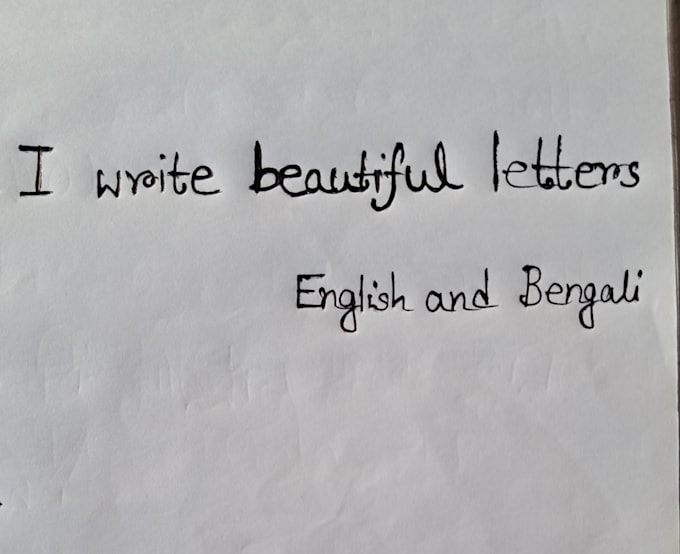 I write beautiful letters
English and Bengali